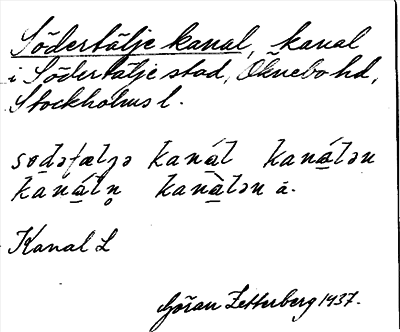 Södertälje kanal, kanal
i Södertälje stad, Öknebo hd,
Stockholms l.
kanál kanálən
kanáln̥ kanàlən ä.
Kanal L
Göran Zetterberg 1937.